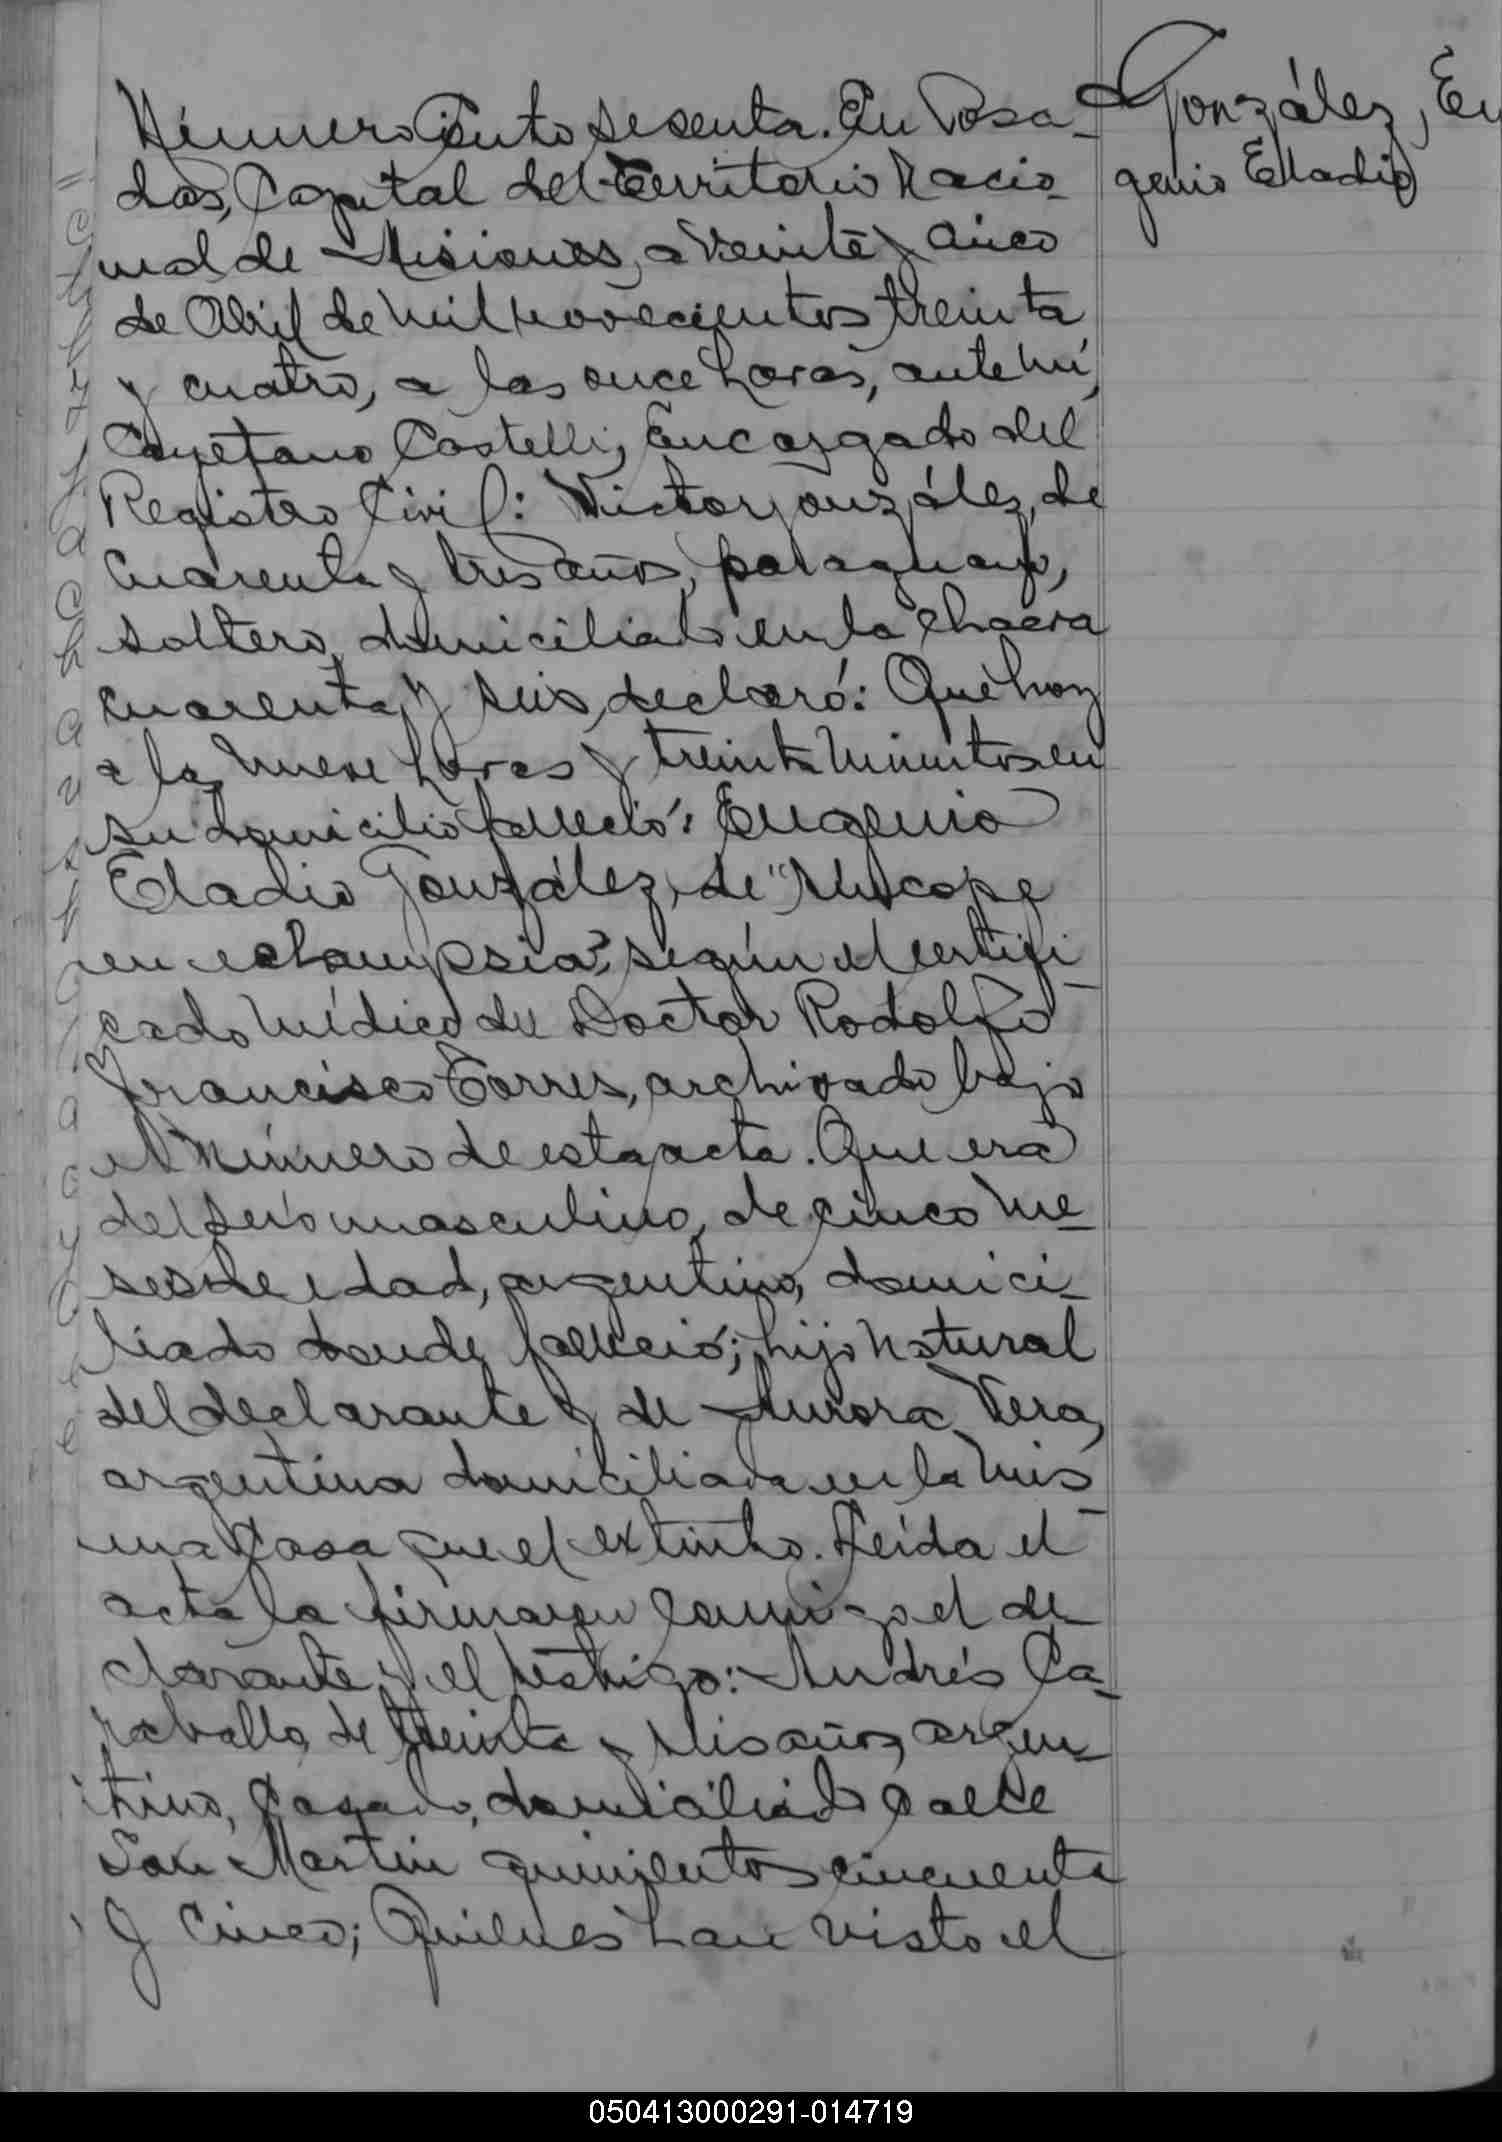 Número Ciento sesenta. En Posa-
das, Capital del Territorio Nacio-
nal de Misiones, a veinte y cinco
de Abril de mil novecientos treinta
y cuatro, a las once horas, ante mí,
Cayetano Castelli, Encargado del
Registro Civil: Victor González, de
cuarenta y tres años, paraguayo,
soltero, domiciliado en la chacra
cuarenta y seis, declaró: Que hoy
a las nueve horas y treinta minutos en
su domicilio falleció: Eugenio
Eladio González, de "Síncope
en eclampsia", según el certifi-
cado médico del Doctor Rodolfo
Francisco Torres, archivado bajo
el número de esta acta. Que era
del sexo masculino, de cinco me-
ses de edad, argentino, domici-
liado donde falleció; hijo natural
del declarante y de Aurora Vera,
argentina domiciliada en la mis-
ma casa que el extinto. Leída el
acta la firmaron conmigo el de-
clarante y el testigo: Andrés Ca-
raballo, de treinta y seis años, argen-
tino, casado, domiciliado calle
San Martín quinientos cincuenta
y cinco; Quienes han visto el
González, Eu
genio Eladio
050413000291-014719